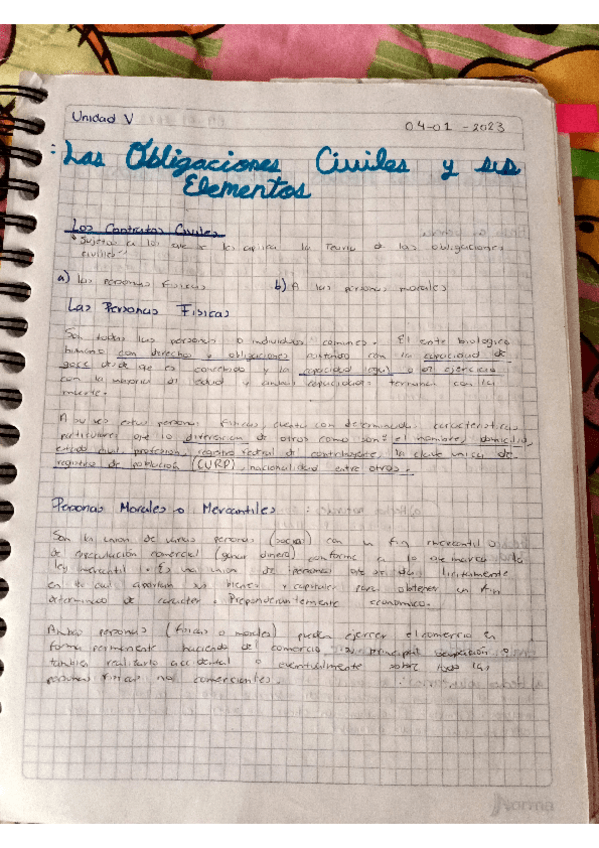 Unidad V
04-01-2023
: Las Obligaciones Civiles y sus
Elementos
Los Contratos Civiles
"Sujetos a los que se les aplica la Teoria d las obligaciones
civiles"
a) Las personas Fisicas
b) A las personas morales
Las Personas Fisicas
Son todas las personas o individuos comunes. El ente biologico
humano con derechos y obligaciones contando con la capacidad de
goce desde que es concebido y la capacidad legal o de ejercicio
con la mayoria de edad y ambas capacidades terminan con la
muerte.
A su vez estas personas Fisicas, cuentan con determinadas caracteristicas
particulares que lo diferencian de otros como son: el nombre, domicilio,
estado civil, profesion, registro federal de contribuyente, la clave unica de
registro de población (CURP), nacionalidad entre otros.
Personas Morales o Mercantiles
Son la union de varias personas (socios) con un fin mercantil o
de especulación comercial (ganar dinero) conforme a lo que marca la
ley mercantil. Es una union de personas que se da licitamente
en la cual aportan sus bienes y capitales para obtener un fin
determinado de caracter. Preponderantemente economico.
Ambas personas (fisicas o morales) pueden ejercer el comercio en
forma permanente haciendo del comercio su principal ocupación o
tambien realizarlo accidental o eventualmente sobre todo las
personas fisicas no comerciantes.
Norma